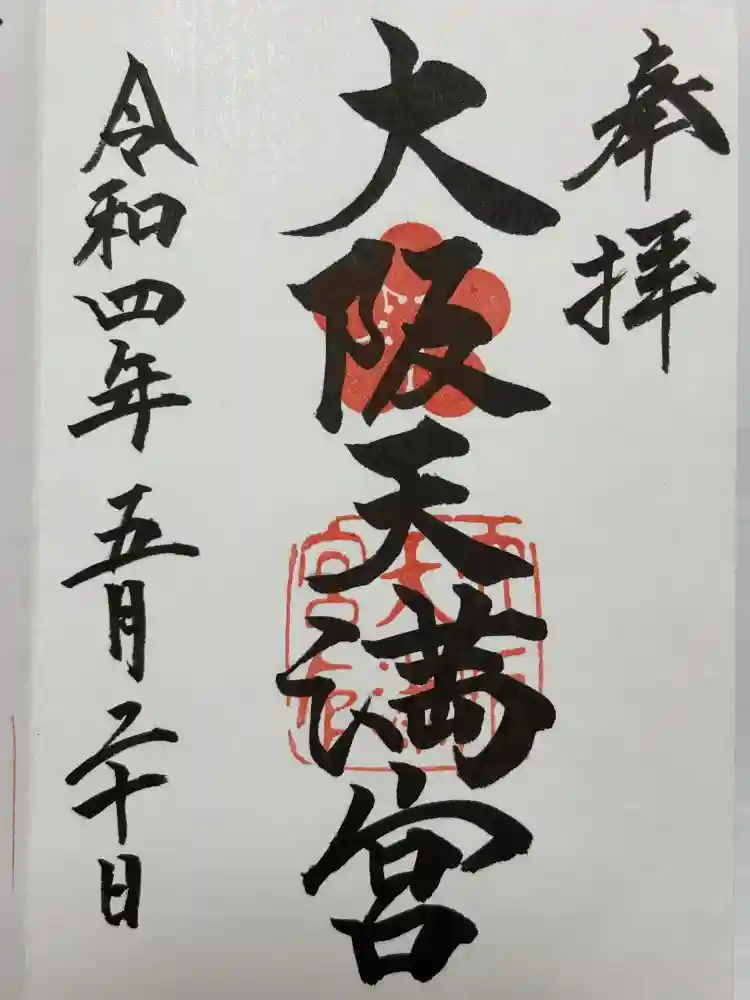 奉拝
大阪天満宮
令和四年五月二十日